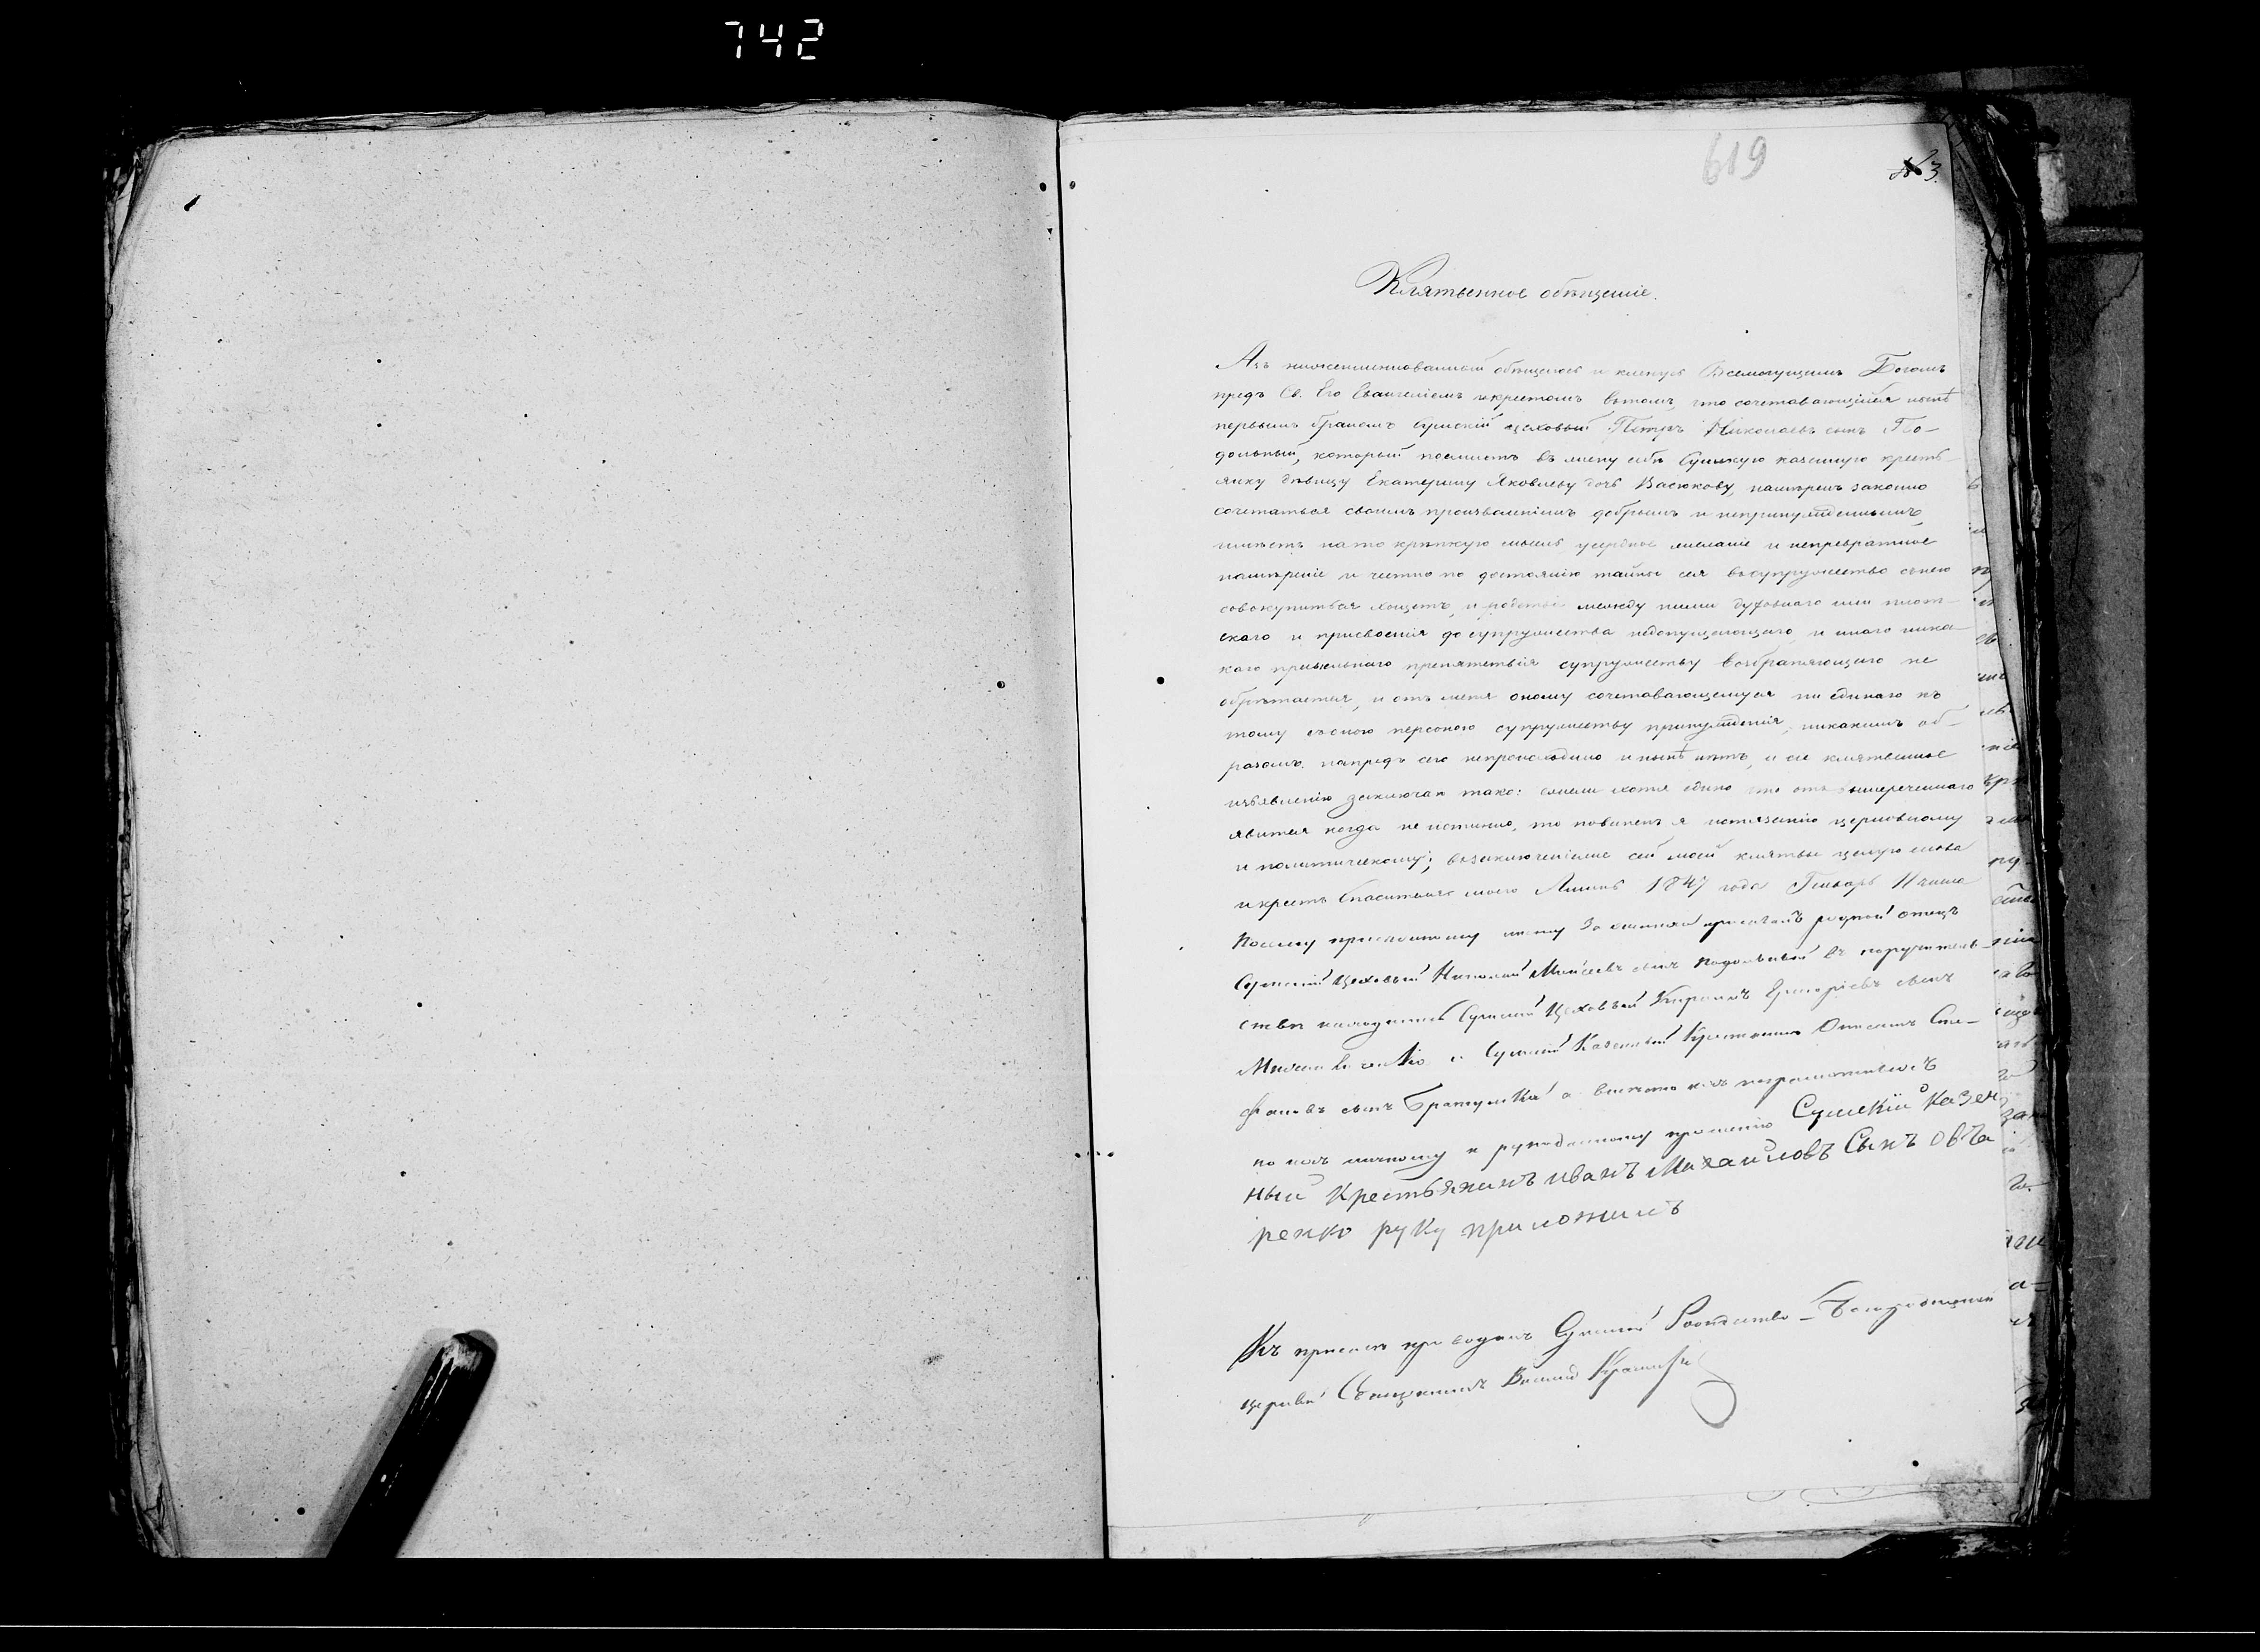 742
619
№3.
Клятвенное обѣщеніе.
Азъ нижепименнованный обѣщаюсь и кленусь Всемогущимъ Богомъ
предъ Св. Его Евангеліемъ икрестомъ вътомъ, что сочетавающійся нынѣ
первымъ бракомъ Сумскій цеховый Петръ Николаевъ сынъ По-
дольный, который поемлетъ въ жену себѣ Сумскую казенную кресть-
янку дѣвицу Екатерину Яковлеву дочь Васюкову, намѣренъ законно
сочетаться своимъ произволеніемъ добрымъ и непринужденнымъ,
имѣетъ нато крѣпкую мысль усердное желаніе и непревратное
намѣреніе и честно по достоянію тайны сея въсупружество сънею
совокупиться хощетъ, и родства между ними духовнаго или плот-
скаго и присвоенія до супружества недопущающаго, и инаго ника-
кого правильнаго препятствія супружеству возбраняющаго не
обрѣтается, и отъ меня оному сочетавающемуся ни единаго къ
тому съоною персоною супружеству принужденія, никакимъ об-
разомъ напредъ сего непроисходило и нынѣ нѣтъ, и сіе клятвенное
изъявленію заключаю тако: ежели хотя едино что отъ вышереченнаго
явится когда не истинно, то повиненъ я истязанію церковному
и политическому; възаключеніеже сей моей клятвы цѣлую слова
икрестъ Спасителя моего Аминь 1847 года Генварь 11 числа
Посему присяжному листу За жениха присягалъ родной отецъ
Сумский Цеховый Николай Мойсеевъ сынъ Подольный въ поручитель-
ствѣ находились Сумский Цеховый Кирилъ Григорьевъ сынъ
и Сумский Казенный Крестьянинъ
сынъ а вместо ихъ неграмотныхъ
по ихъ личному и рукоданному прошению Сумскій Казен
ный Крестьянинъ иванъ Михаиловъ Сынъ овча
ренко руку приложилъ
Къ присягѣ приводилъ Сумской Рождество-Богородичной
церкви Священникъ